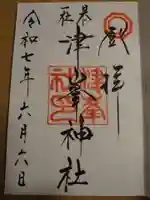 奉拝
津峯神社
令和七年六月六日